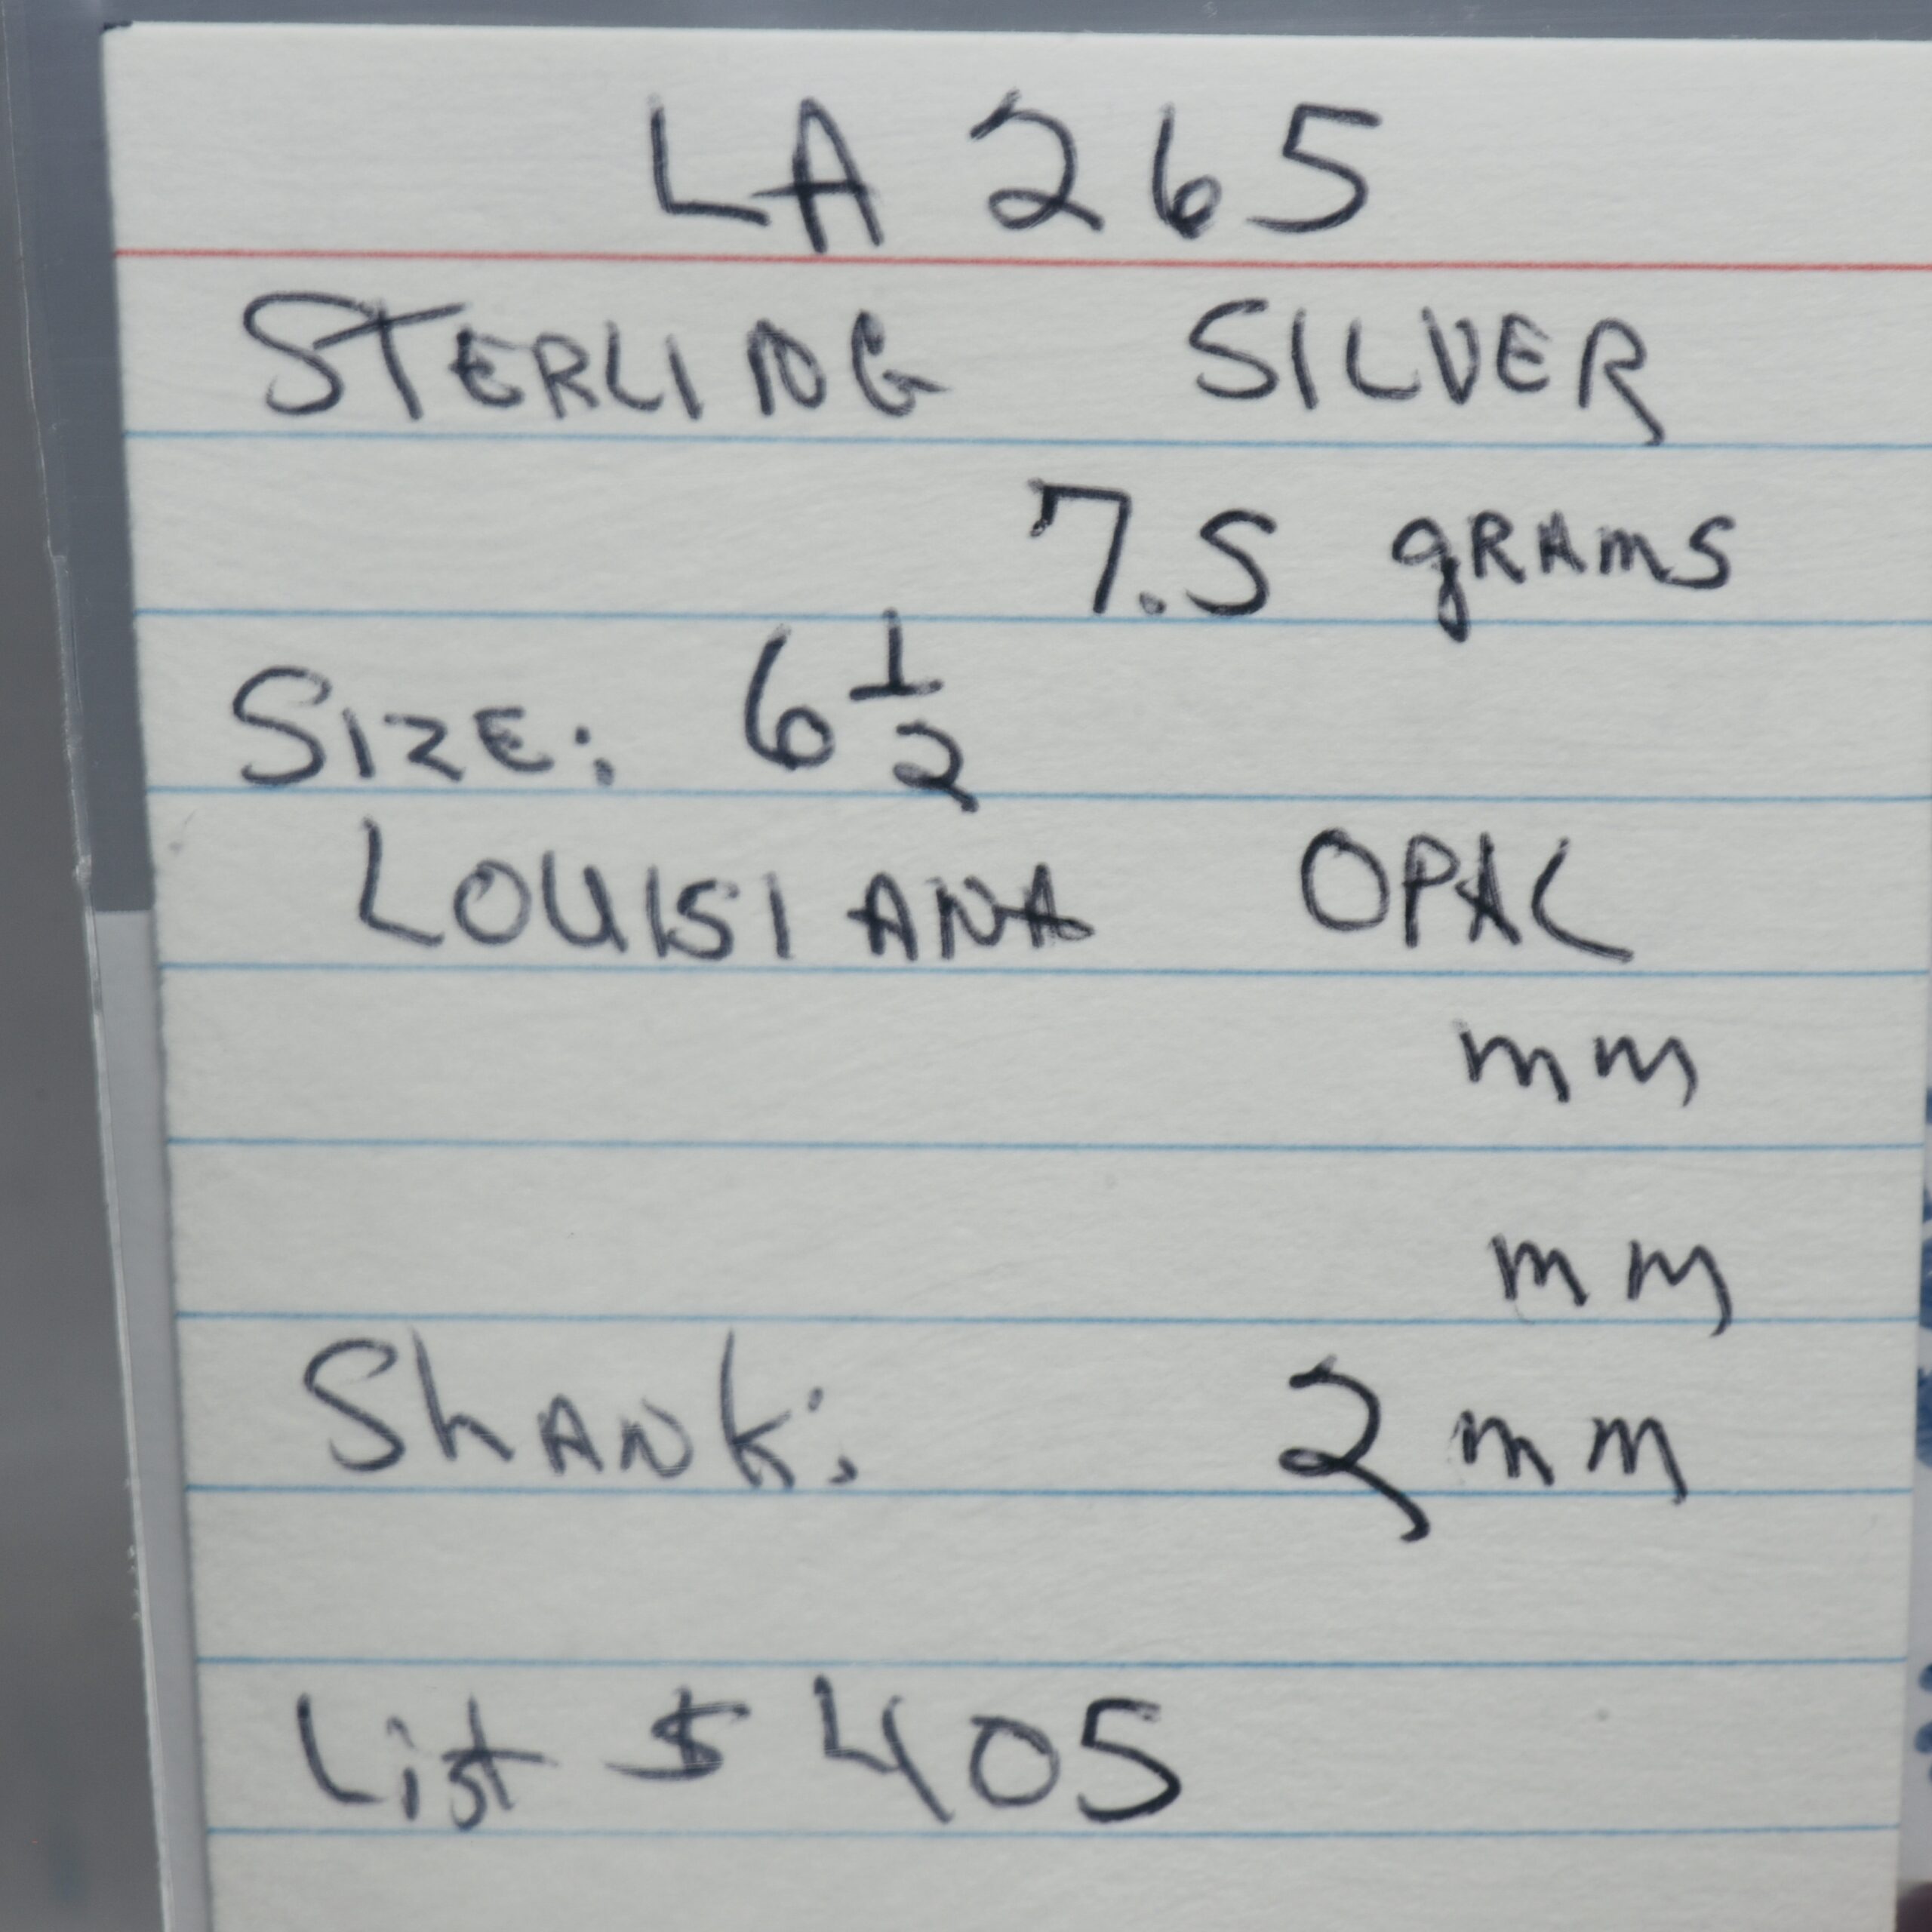 LA 265
STERLING SILVER
7.5 grams
SIZE: 6 1/2
LOUISIANA OPAL
mm
mm
Shank: 2 mm
List $ 405